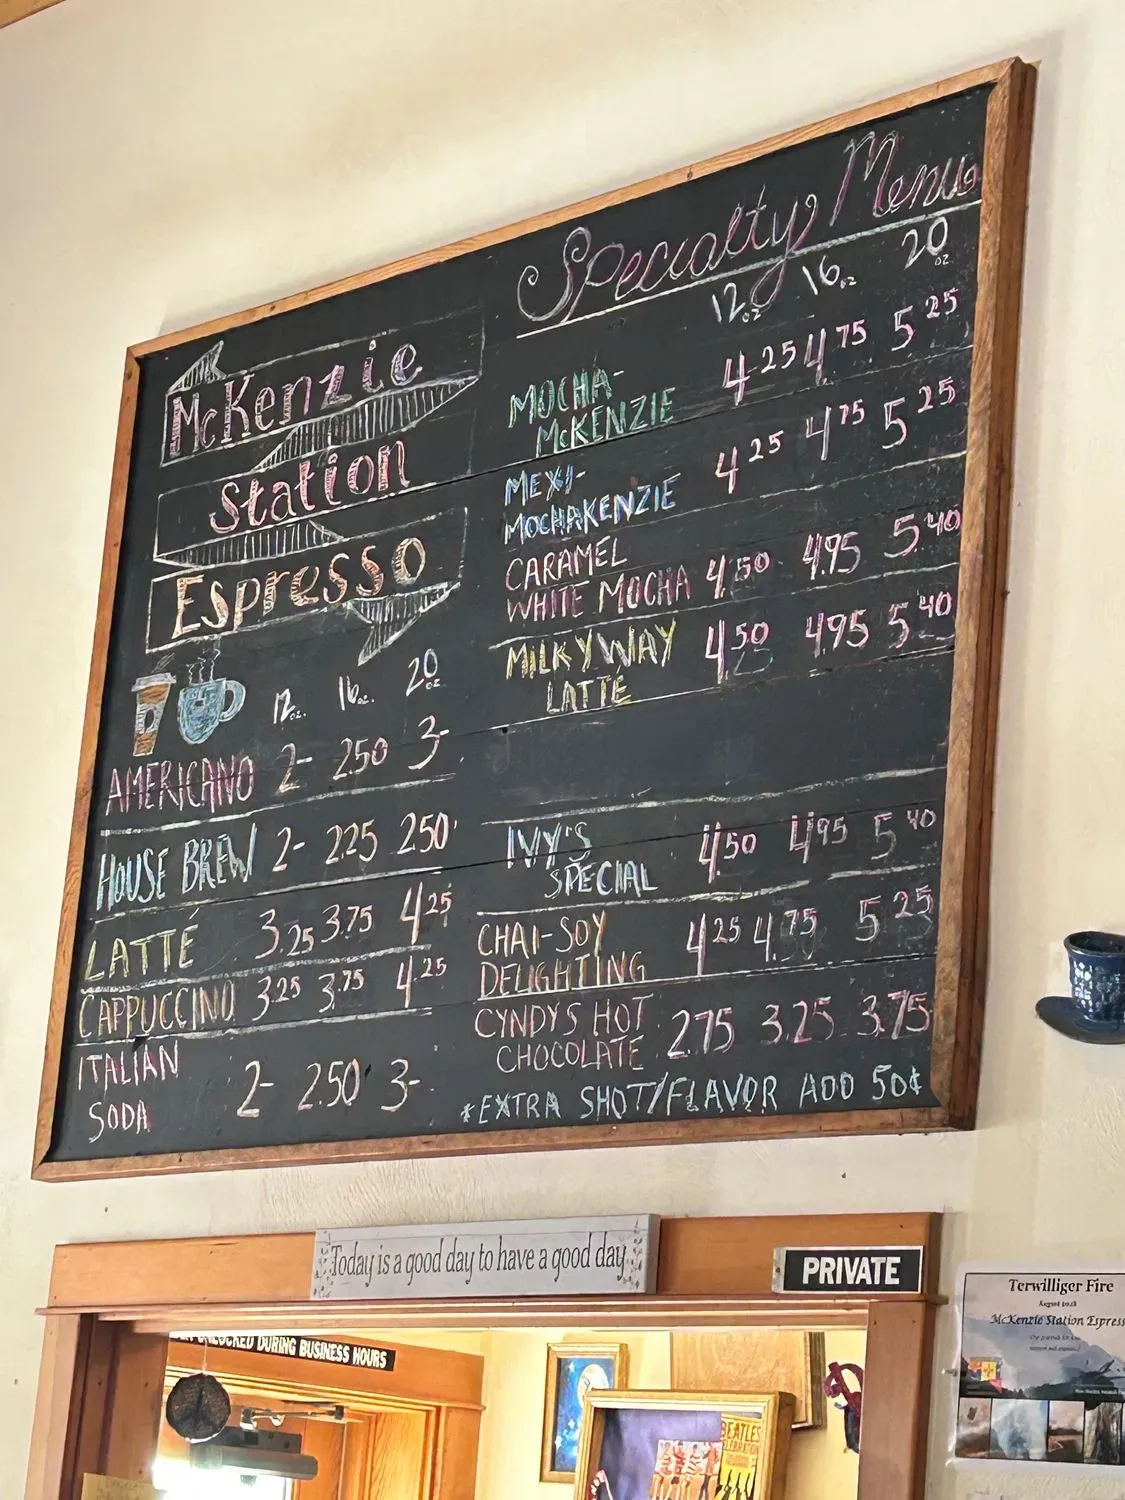 McKenzie
Station
Espresso
12 oz. 16 oz. 20 oz.
AMERICANO 2- 2.50 3-
HOUSE BREW 2- 2.25 2.50
LATTÉ 3.25 3.75 4.25
CAPPUCCINO 3.25 3.75 4.25
ITALIAN
SODA 2- 2.50 3-
Specialty Menu
12 oz 16 oz 20 oz
MOCHA-
McKENZIE 4.25 4.75 5.25
MEXI-
MOCHAKENZIE 4.25 4.75 5.25
CARAMEL
WHITE MOCHA 4.50 4.95 5.40
MILKYWAY
LATTÉ 4.50 4.95 5.40
IVY'S
SPECIAL 4.50 4.95 5.40
CHAI-SOY
DELIGHTING 4.25 4.75 5.25
CYNDY'S HOT
CHOCOLATE 2.75 3.25 3.75
*EXTRA SHOT/FLAVOR ADD 50¢
Today is a good day to have a good day
PRIVATE
UNLOCKED DURING BUSINESS HOURS
BEATLES
Terwilliger Fire
August 2018
McKenzie Station Espress